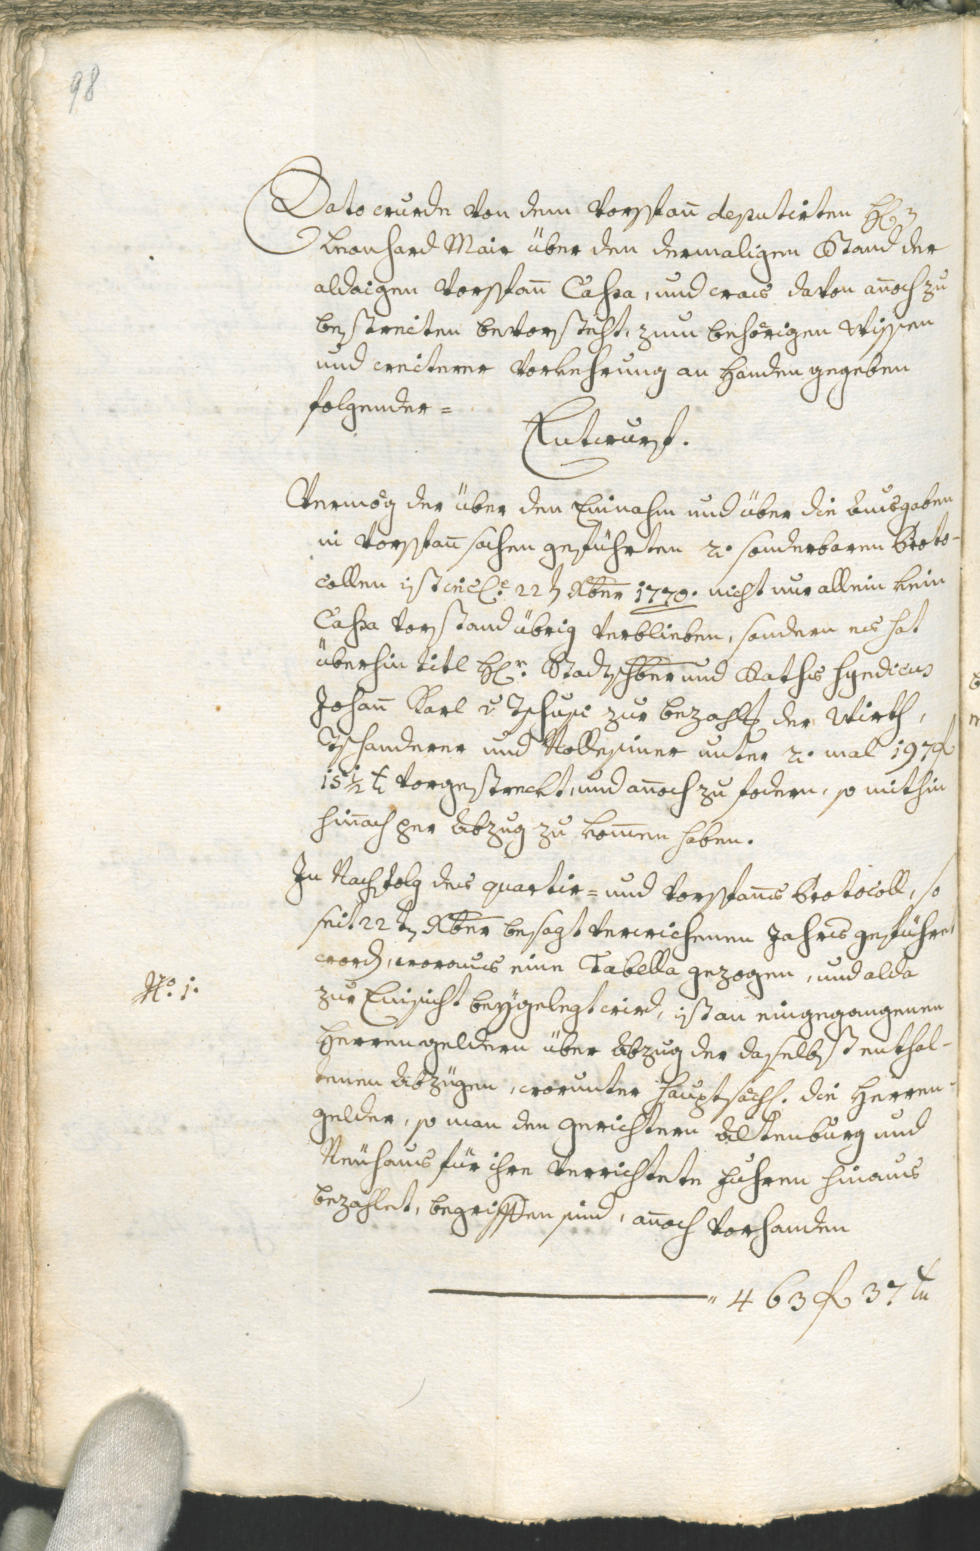 98
Dato wurde von dem Vorspann deputirten H:
Leonhard Mair über den dermaligen Stand der
aldaigen Vorspann Cassa, und was davon annoch zu
bestreiten bevorsteht, zum behörigen Wissen
und weiterer Vorkehrung an Handen gegeben
folgender =
Entwurf.
Vermög der über den Einnahm und über die Ausgaben
in Vorspann sachen geführten 2. sonderbaren Proto-
collen ist 22t Xber 1770. nicht nur allein kein
Cassa Vorstand übrig verblieben, sondern es hat
überhin titl H: Stadtschreiber und Raths Syndicus
Johann Karl v Tschusi zur bezahlg der Wirth,
Tschanderer und unter 2. mal 197 f
15½ x vorgestreckt, und annoch zu fodern, so mithin
hinnach per Abzug zu kommen haben.
In Nachfolg des quartir = und Vorspanns Protocoll, so
seit 22t Xber besagt verwichenen Jahrs geführet
word, woraus eine Tabella gezogen, und alda
No: 1.
zur Einsicht beygelegt wird, ist an eingegangenen
Herrengeldern über Abzug der daselbst enthal-
tenen Abzügen, worunter hauptsächl. die Herren-
gelder, so man den Gerichtern Altenburg und
Neuhaus für ihre verrichtete Fuhren hinaus
bezahlet, begriffen sind, annoch vorhanden
" 463 f 37 x